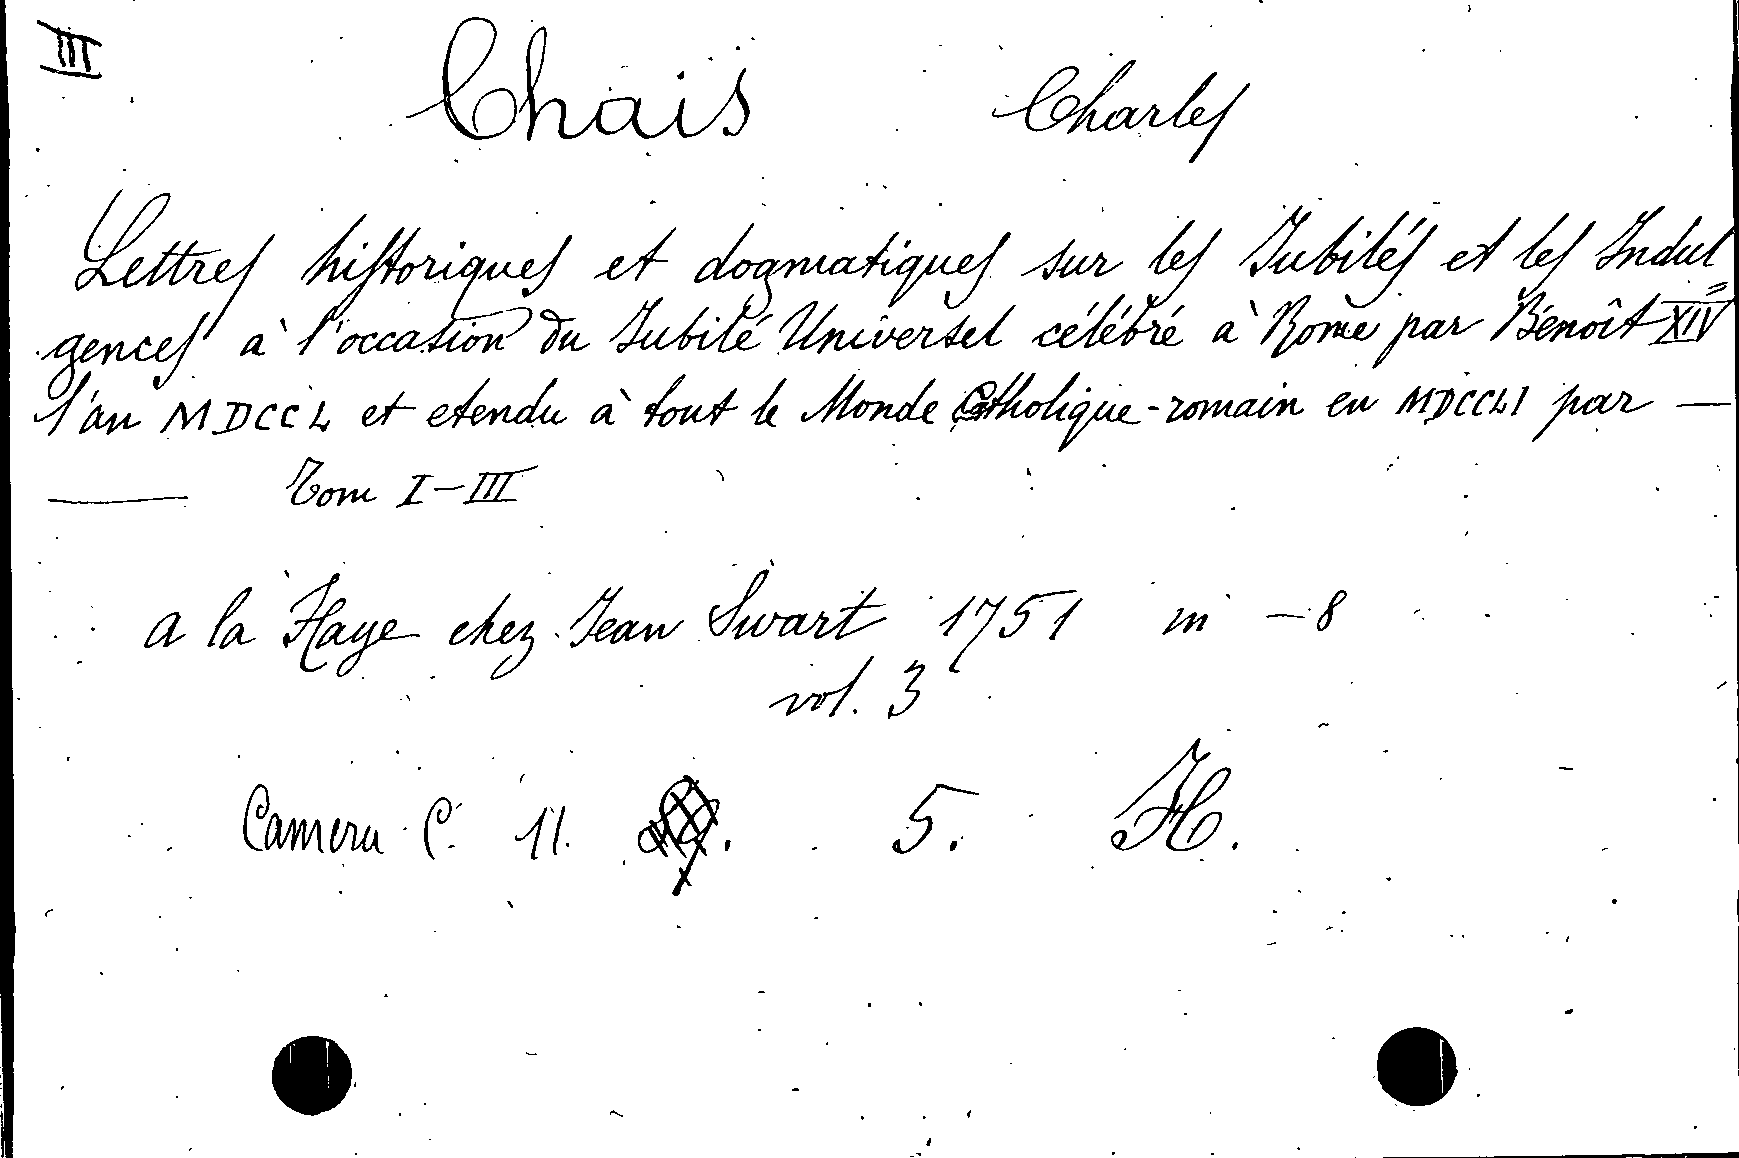 III
Chais Charles
Lettres historiques et dogmatiques sur les Jubilés et les Indul=
gences à l'occasion du Jubilé Universel célébré à Rome par Bénoît XIV
l'an MDCCL et etendu à tout le Monde Catholique-romain en MDCCLI par —
— Tom I-III
a la Haye chez Jean Swart 1751 in -8
vol. 3
Camera C. 11. 5. H.